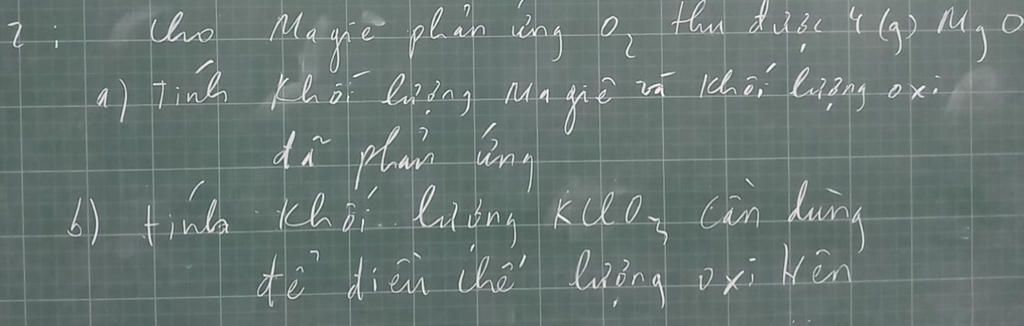 2: Cho Magiê phản ứng O₂ thu được 4 (g) MgO
a) Tính khối lượng Magiê và khối lượng oxi
đã phản ứng
b) tính khối lượng KClO₃ cần dùng
để điều chế lượng oxi trên